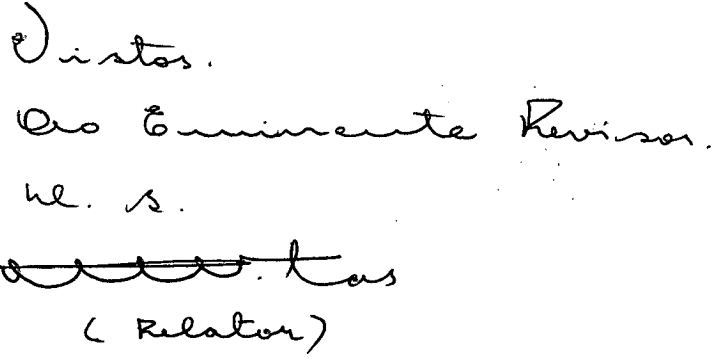 Vistos.
Ao Eminente Revisor.
(Relator)